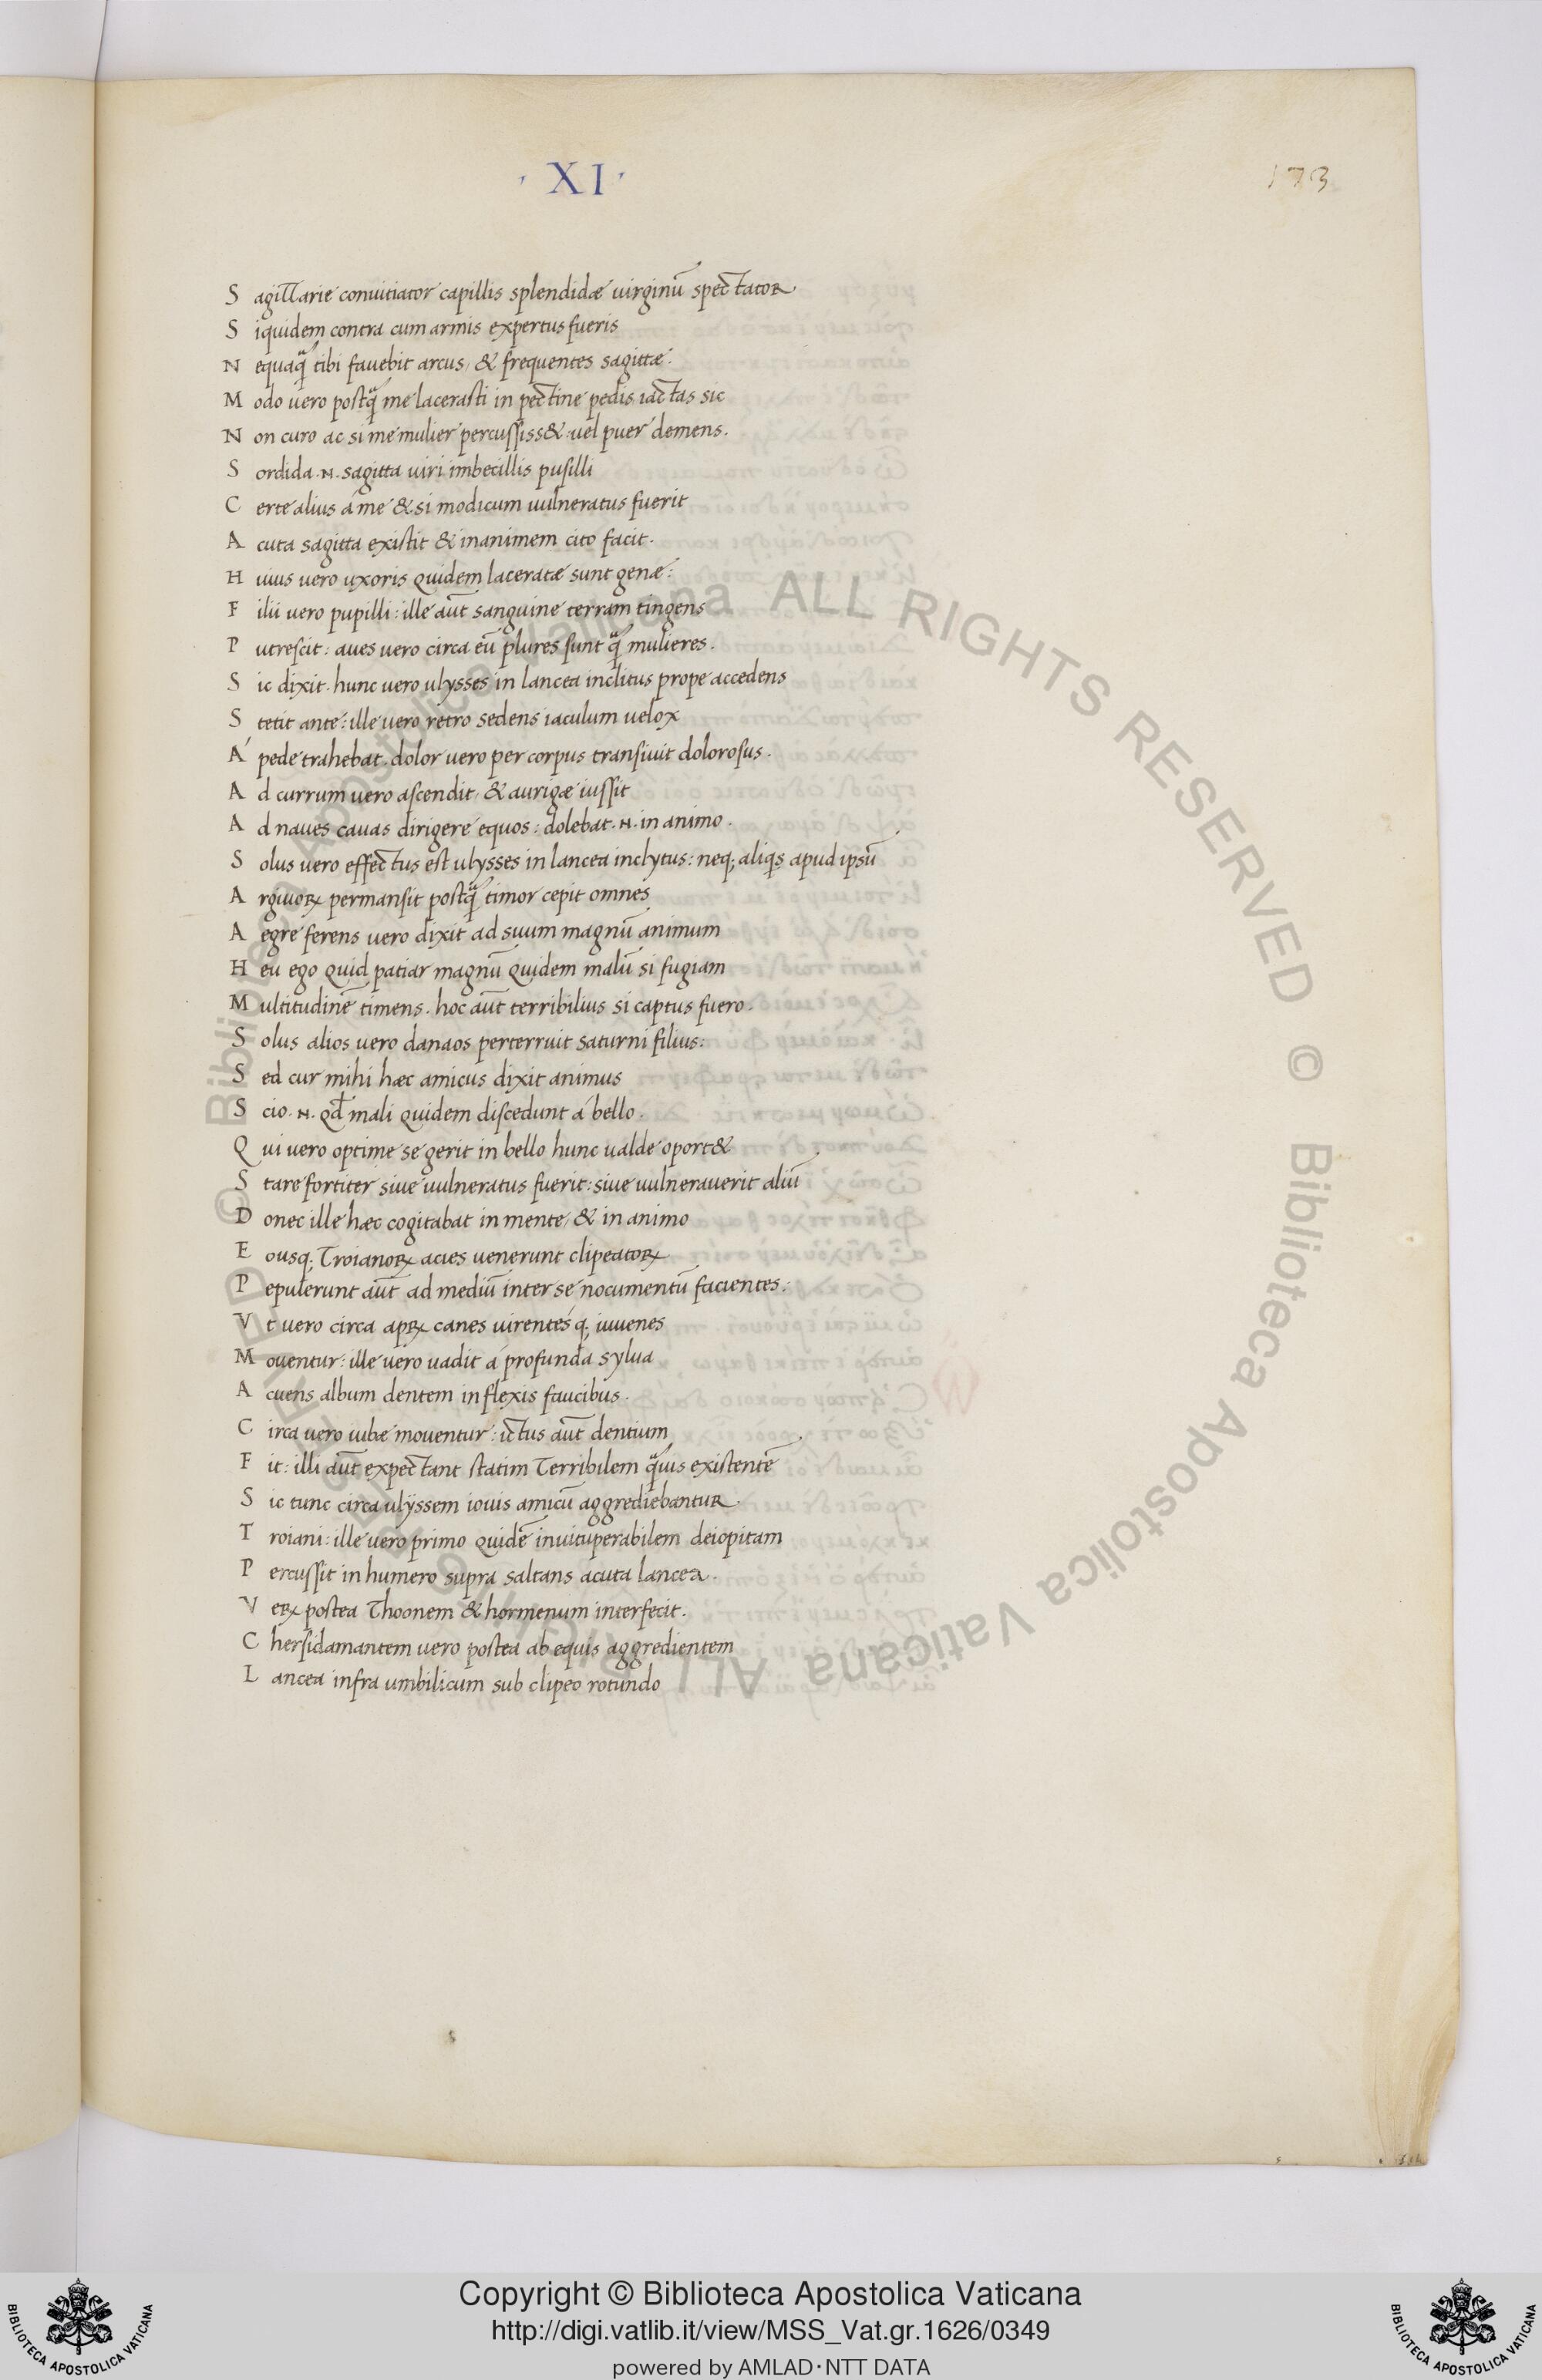 · XI ·
173
S agittarie conuitiator capillis splendidæ uirginū spectator.
S iquidem contra cum armis expertus fueris
N equaq̃ tibi fauebit arcus, & frequentes sagittæ:
M odo uero postq̃ me lacerasti in pectine pedis iactas sic
N on curo ac si me mulier percussiss&: uel puer demens.
S ordida .N. sagitta uiri imbecillis pusilli
C erte alius á me & si modicum uulneratus fuerit
A cuta sagitta existit & inanimem cito facit.
H uius uero uxoris quidem laceratæ sunt genæ:
F ilii uero pupilli: ille aūt sanguine terram tingens
P utrescit: aues uero circa eū plures sunt q̃ mulieres.
S ic dixit. hunc uero ulysses in lancea inclitus prope accedens
S tetit ante: ille uero retro sedens iaculum uelox
Á pede trahebat. dolor uero per corpus transiuit dolorosus.
A d currum uero ascendit, & aurigæ iussit
A d naues cauas dirigere equos: dolebat .N. in animo.
S olus uero effectus est ulysses in lancea inclytus: neq; aliq̄s apud ipsū
A rgiuoꝝ permansit postq̃ timor cepit omnes
A egre ferens uero dixit ad suum magnū animum
H eu ego quid patiar magnū quidem malū si fugiam
M ultitudinē timens. hoc aūt terribilius si captus fuero.
S olus alios uero danaos perterruit saturni filius:
S ed cur mihi hæc amicus dixit animus
S cio .N. qđ mali quidem discedunt á bello.
Q ui uero optime se gerit in bello hunc ualde oport&
S tare fortiter siue uulneratus fuerit: siue uulnerauerit aliū
D onec ille hæc cogitabat in mente, & in animo
E ousq; Troianoꝝ acies uenerunt clipeatoꝝ
P epulerunt aūt ad mediū inter se nocumentū facientes:
V t uero circa apꝝ canes uirentésq; iuuenes
M ouentur: ille uero uadit á profunda sylua
A cuens album dentem in flexis faucibus.
C irca uero iubæ mouentur: ictus aūt dentium
F it: illi aūt expectant statim Terribilem q̃uis existentē
S ic tunc circa ulyssem iouis amicū aggrediebantur.
T roiani: ille uero primo quidē inuituperabilem deiopitam
P ercussit in humero supra saltans acuta lancea.
V eꝝ postea Thoonem & hormenum interfecit.
C hersidamantem uero postea ab equis aggredientem
L ancea infra umbilicum sub clipeo rotundo
© Biblioteca Apostolica Vaticana ALL RIGHTS RESERVED © Biblioteca Apostolica Vaticana ALL RIGHTS RESERVED
Copyright © Biblioteca Apostolica Vaticana
http://digi.vatlib.it/view/MSS_Vat.gr.1626/0349
powered by AMLAD・NTT DATA
BIBLIOTECA APOSTOLICA VATICANA
BIBLIOTECA APOSTOLICA VATICANA